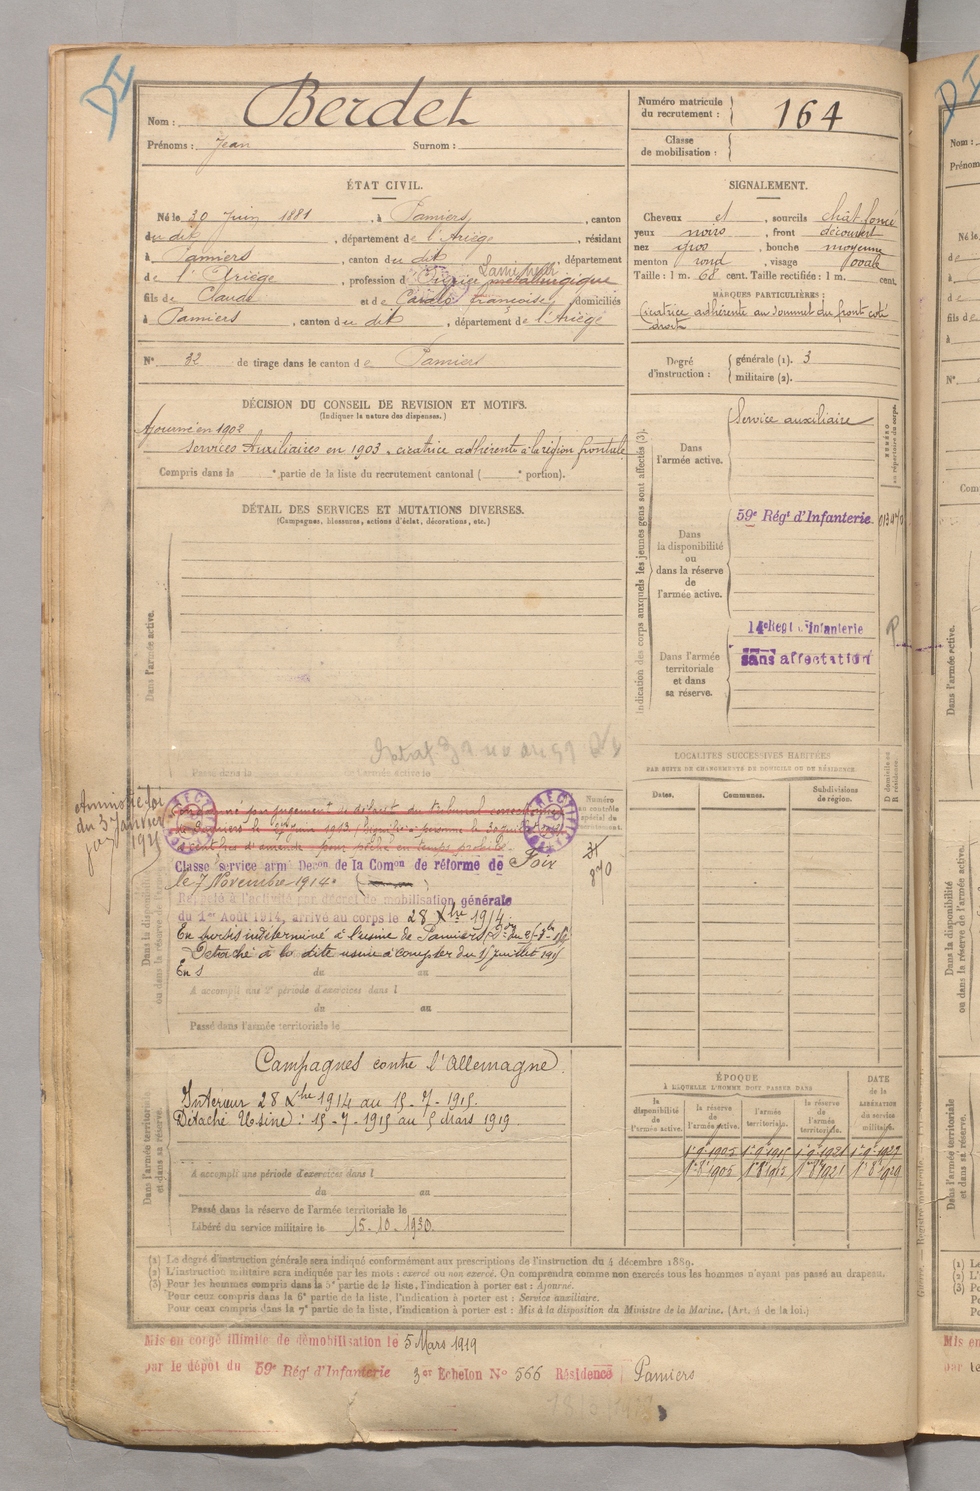 DI
Nom : Berdet
Prénoms : Jean Surnom :
Numéro matricule du recrutement : 164
Classe de mobilisation :
ÉTAT CIVIL.
Né le 30 Juin 1881, à Pamiers, canton
du dit, département de l'Ariège, résidant
à Pamiers, canton du dit, département
de l'Ariège, profession d'Ouvrier métallurgique Lamineur
fils de Claude et de Françoise, domiciliés
à Pamiers, canton du dit, département de l'Ariège
N° 32 de tirage dans le canton de Pamiers
SIGNALEMENT.
Cheveux et, sourcils chât foncé
yeux noirs, front découvert
nez gros, bouche moyenne
menton rond, visage ovale
Taille : 1 m. 68 cent. Taille rectifiée : 1 m. cent.
MARQUES PARTICULIÈRES :
Cicatrice adhérente au sommet du front coté
droit
Degré d'instruction : générale (1). 3
militaire (2).
DÉCISION DU CONSEIL DE REVISION ET MOTIFS.
(Indiquer la nature des dispenses.)
Ajourné en 1902
Services Auxiliaires en 1903. cicatrice adhérente à la région frontale
Compris dans la e partie de la liste du recrutement cantonal ( e portion).
DÉTAIL DES SERVICES ET MUTATIONS DIVERSES.
(Campagnes, blessures, actions d'éclat, décorations, etc.)
Dans l'armée active.
Indication des corps auxquels les jeunes gens sont affectés (3).
NUMÉRO au répertoire du corps.
Dans l'armée active.
Service auxiliaire
Dans la disponibilité ou dans la réserve de l'armée active.
59e Régt d'Infanterie.
Dans l'armée territoriale et dans sa réserve.
14e Regt d'Infanterie
sans affectation
P
Passé dans la
LOCALITÉS SUCCESSIVES HABITÉES
PAR SUITE DE CHANGEMENTS DE DOMICILE OU DE RÉSIDENCE
Dates. Communes. Subdivisions de région. D domicile ou R résidence.
Amnistie loi
du 3 Janvier
Numéro au contrôle spécial du recrutement.
RECTIFICATION
par jugement de défaut du tribunal correctionnel
de Pamiers le
d'amende pour pêche en temps prohibé.
Classé service armé Déc on de la Com on de réforme de Foix
le 7 Novembre 1914.
Rappelé à l'activité par décret de mobilisation générale
du 1er Août 1914, arrivé au corps le 28 Xbre 1914.
En sursis indéterminé à l'usine de Pamiers
Détaché à la dite usine à compter du 15 Juillet 1915
En s du au
A accompli une 2e période d'exercices dans l
du au
Passé dans l'armée territoriale le
Dans la disponibilité ou dans la réserve de l'armée active.
Campagnes contre l'Allemagne.
Intérieur 28 Xbre 1914 au 15-7-1915.
Détaché Usine : 15-7-1915 au 5 Mars 1919
A accompli une période d'exercices dans l
du au
Passé dans la réserve de l'armée territoriale le
Libéré du service militaire le 15.10.1930.
Dans l'armée territoriale et dans sa réserve.
ÉPOQUE
À LAQUELLE L'HOMME DOIT PASSER DANS
DATE de la LIBÉRATION du service militaire.
la disponibilité de l'armée active. la réserve de l'armée active. l'armée territoriale. la réserve de l'armée territoriale.
(1) Le degré d'instruction générale sera indiqué conformément aux prescriptions de l'instruction du 4 décembre 1889.
(2) L'instruction militaire sera indiquée par les mots : exercé ou non exercé. On comprendra comme non exercés tous les hommes n'ayant pas passé au drapeau.
(3) Pour les hommes compris dans la 5e partie de la liste, l'indication à porter est : Ajourné.
Pour ceux compris dans la 6e partie de la liste, l'indication à porter est : Service auxiliaire.
Pour ceux compris dans la 7e partie de la liste, l'indication à porter est : Mis à la disposition du Ministre de la Marine. (Art. 4 de la loi.)
Mis en congé illimité de démobilisation le 5 Mars 1919
par le dépôt du 59e Régt d'Infanterie 3er Echelon N° 566 Résidence Pamiers